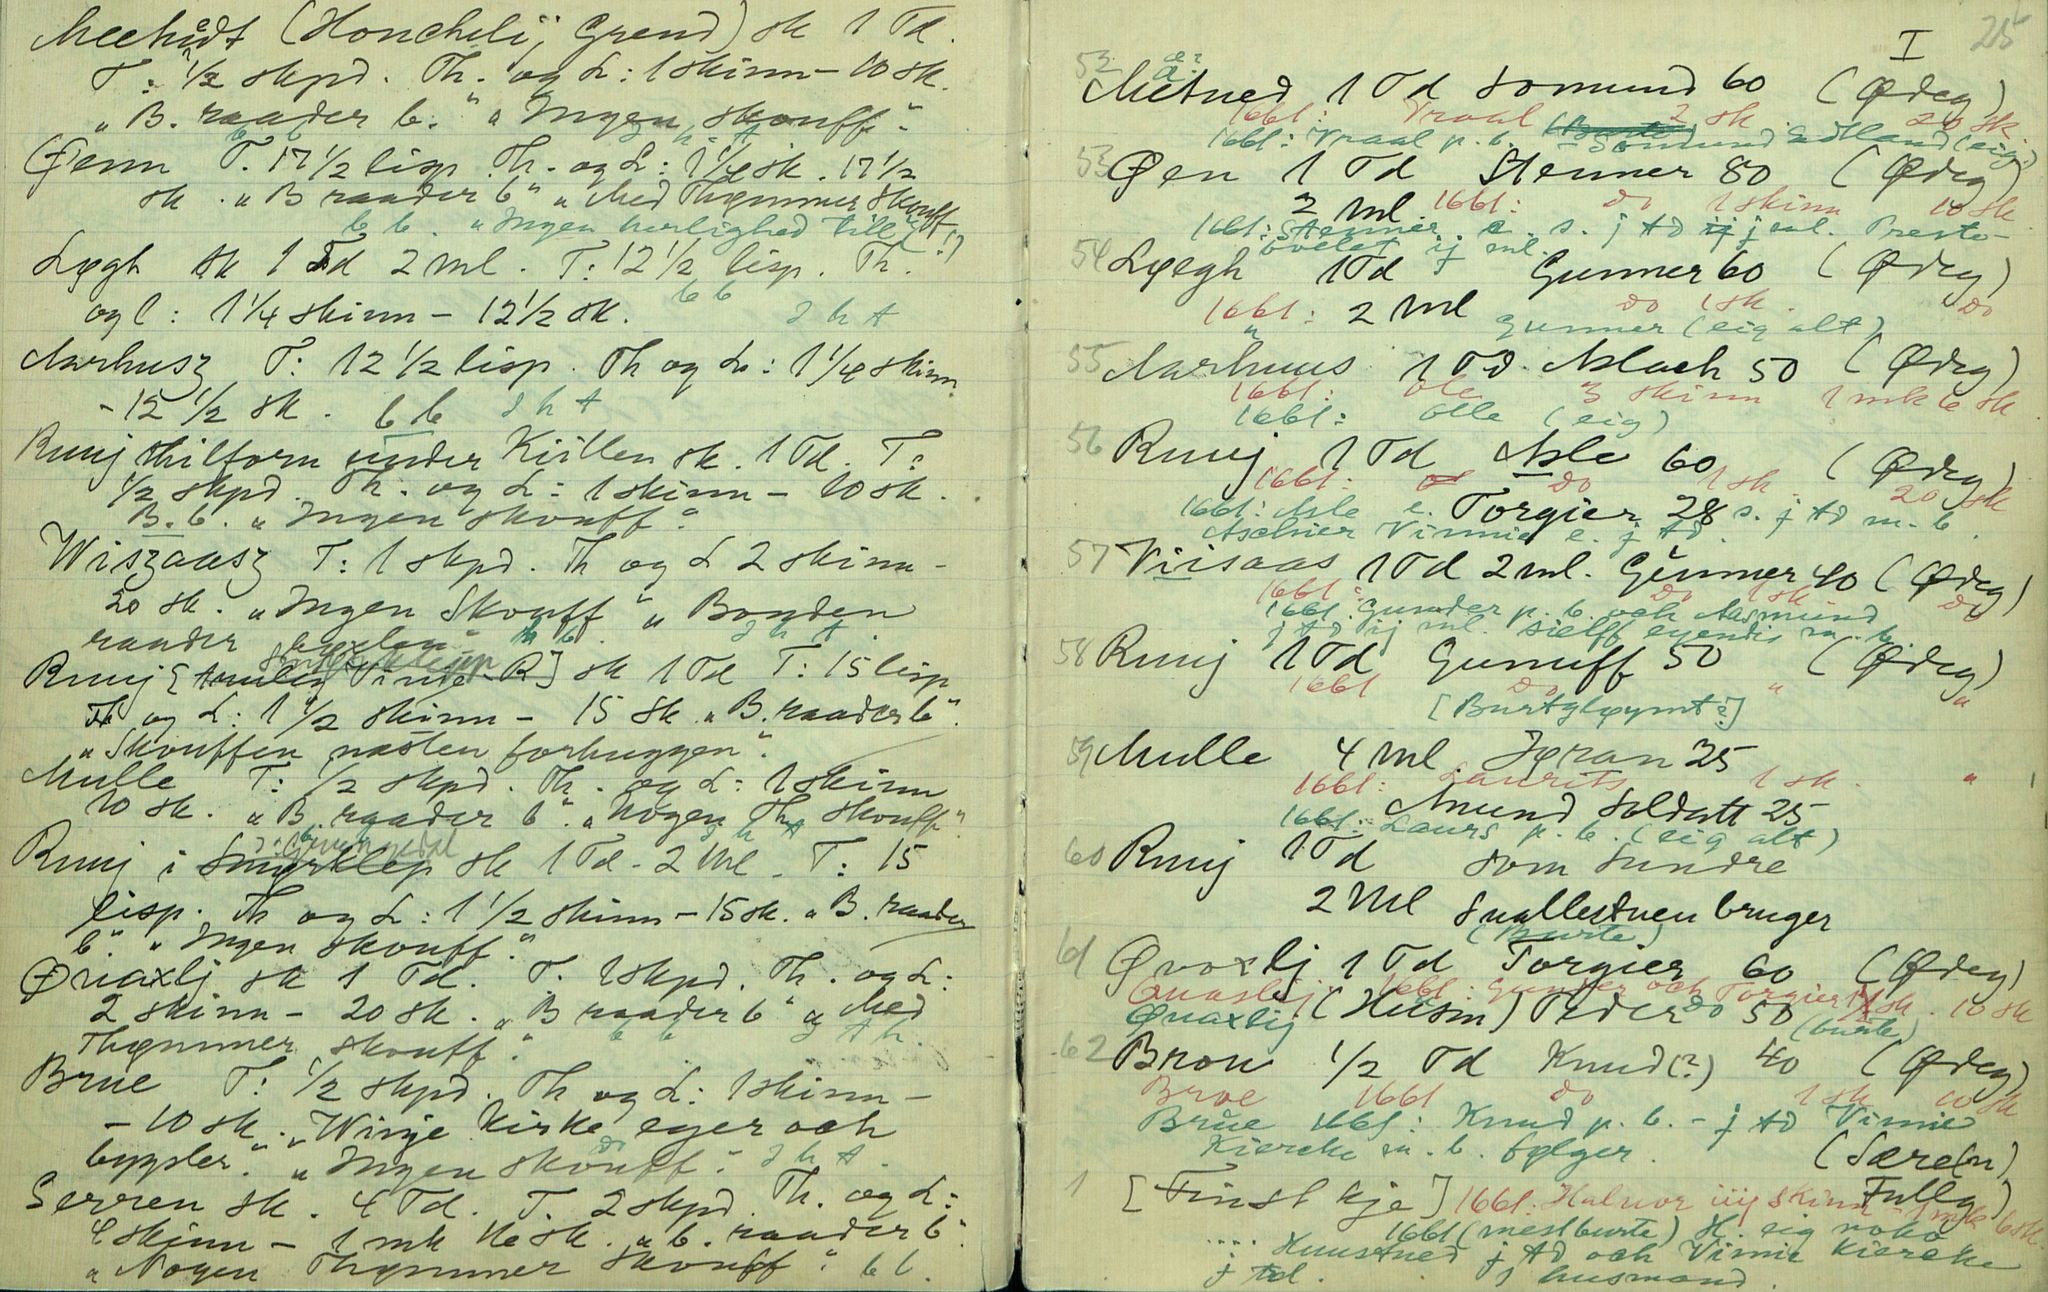 Meetwedt (Honchelij Grend) sk 1 Td.
T: 1/2 skpd. Th. og L: 1 skinn – 10 sk.
"B. raader b." "Ingen skouff".
Øenn T. 17 1/2 lisp. Th. og L: 1 1/4 sk. 17 1/2
sk. "B raader b" "Med Thømmer skouff
b b. "Ingen herlighed till" (!)
Løgh sk 1 Td 2 ml. T: 12 1/2 lisp. Th.
og l: 1 1/4 skinn – 12 1/2 sk. b b
s h t
Aarhusz T: 12 1/2 lisp. Th og L: 1 1/4 skinn
– 12 1/2 sk. b b s h t
Ruuj thilforn under Kiillen sk. 1 Td. T:
1/2 skpd. Th. og L: 1 skinn – 10 sk.
B. b. "Ingen skouff".
Wiszaasz T: 1 skpd. Th og L 2 skinn –
20 sk. "Ingen Skouff" "Bonden
raader bøxlen" b b. s h t.
Ruuj [ Vinie R] sk 1 Td T: 15 lisp
Th og L: 1 1/2 skinn – 15 sk. "B. raader b".
"Skouffen næsten forhuggen".
Mulle T: 1/2 skpd. Th. og L: 1 skinn
10 sk. "B. raader b". "Nogen Th. skouff".
s h t
Ruuj i Smørklep sk 1 Td – 2 Ml. T: 15
lisp. Th og L: 1 1/2 skinn – 15 sk. "B. raader
b". "Ingen skouff."
Øuaxlj sk 1 Td. T. 1 skpd. Th. og L:
2 skinn – 20 sk. "B raader b" "Med
Thømmer skouff". b b s t h.
Brue T: 1/2 skpd. Th og L: 1 skinn –
– 10 sk. "Winje Kirke eger och
bygsler." "Ingen skouff". s h t.
Serren sk. 4 Td. T. 2 skpd. Th. og L:
4 skinn – 1 mk 16 sk. "b. raader b".
"Nogen Thømmer skouff". b b.
I 25
52 Metned 1 Td Somund 60 (Ødeg)
1661: Vraal 2 sk 20 sk
1661: Vraal p. b. Somund Edland (eig.)
53 Øen 1 Td Stenner 80 (Ødeg)
2 ml. 1661: do 1 skinn 10 sk
1661: Stenner e. s. j td ij ml. Preste-
bolet ij ml.
54 Løegh 1 Td Gunner 60 (Ødeg)
1661: 2 ml do 1 sk. do
" Gunner (eig alt)
55 Aarhuus 1 Td. Aslach 50 (Ødeg)
1661: Ole 3 skinn 1 mk 6 sk
1661: Olle (eig)
56 Ruuj 1 Td Asle 60 (Ødeg)
1661: do 1 sk. 20 sk
1661: Asle e. Torgier 28 s. j td m. b.
Aschier Vinnie e. j td.
57 Viisaas 1 Td 2 ml. Günner 40 (Ødeg)
1661: do 1 sk do
1661: Gunder p. b. och Aasmund
j td ij ml. sielff eyendis m. b.
58 Ruuj 1 Td Gunuff 50 (Ødeg)
1661 do " "
[Burtgløymt?]
59 Mulle 4 ml. Jøran 25
1661: Laurits 1 sk. "
Amund Soldatt 25
1661: Laurs p. b. (eig alt)
60 Ruuj 1 Td som Sundre
2 Ml Suallestuen bruger
(Burte)
61 Øvoxlj 1 Td Torgier 60 (Ødeg)
Øuaslij 1661: Gunder och Torgier 1 sk. 10 sk
Øuaxlig (Husm) Peder 50 (burte)
62 Brou 1/2 Td Knud (?) 40 (Ødeg)
Broe 1661 do 1 sk 10 sk
Brüe 1661: Knud p. b. – j td Vinnie
Kiercke m. b. følger.
(Sære(n)
1 [Finst kje] 1661: Haluor iiij skinn – 1 mk 16 sk. Fullg)
1661 (mestburte) H. eig noko
.... Huustned j td och Vinnie Kiercke
j td. 1 husmand.